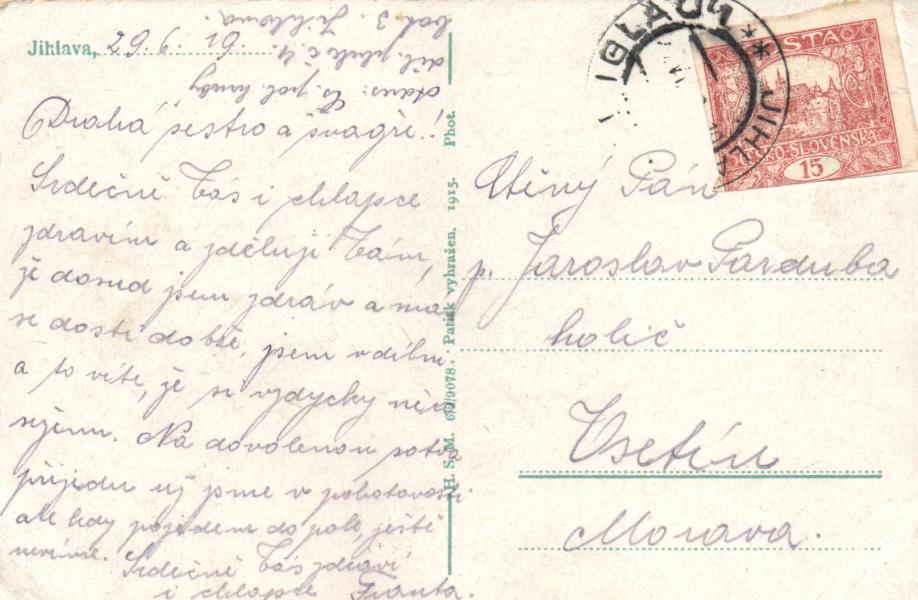 Jihlava, 29. 6. 19.
Drahá sestro a švagře!
Srdečně Vás i chlapce
zdravím a zděluji Vám,
že dosud jsem zdráv a má
se dosti dobře, jsem v dílně
a to víte, že si vždycky něco
najdem. Na dovolenou sotva
přijedu už jsme v pohotovosti
ale kdy pojedem do pole, ještě
nevíme. Srdečně Vás zdraví
i chlapce Franta.
děl. pluk č. 4.
bat 3. Jihlava.
H. S. M. 69/9078. Patisk vyhražen. 1915. Phot.
IGLAU 1
** JIHLA
ŠTA
ČESKO-SLOVENSKÁ
15
Ctěný Pán
p. Jaroslav Parduba
holič
Vsetín
Morava.